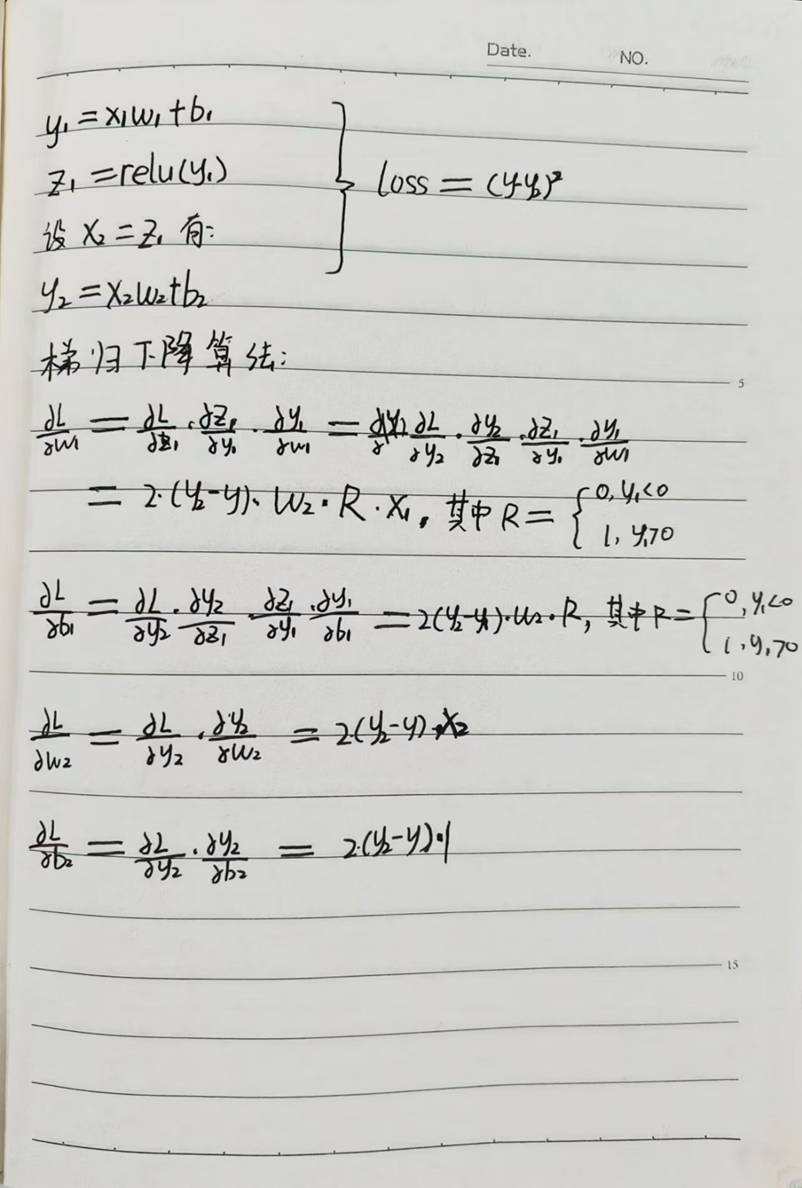 Date. NO.
y₁ = x₁w₁ + b₁
z₁ = relu(y₁)
loss = (y-y₂)²
设 x₂ = z₁ 有:
y₂ = x₂w₂+b₂
梯归下降算法:
5
∂L/∂w₁ = ∂L/∂z₁ · ∂z₁/∂y₁ · ∂y₁/∂w₁ = ∂L/∂y₂ · ∂y₂/∂z₁ · ∂z₁/∂y₁ · ∂y₁/∂w₁
= 2·(y₂-y)· w₂ · R · x₁, 其中 R = { 0, y₁<0
1, y₁>0
∂L/∂b₁ = ∂L/∂y₂ · ∂y₂/∂z₁ · ∂z₁/∂y₁ · ∂y₁/∂b₁ = 2(y₂-y)·w₂·R, 其中 R = { 0, y₁<0
1, y₁>0
10
∂L/∂w₂ = ∂L/∂y₂ · ∂y₂/∂w₂ = 2(y₂-y)·x₂
∂L/∂b₂ = ∂L/∂y₂ · ∂y₂/∂b₂ = 2·(y₂-y)·1
15